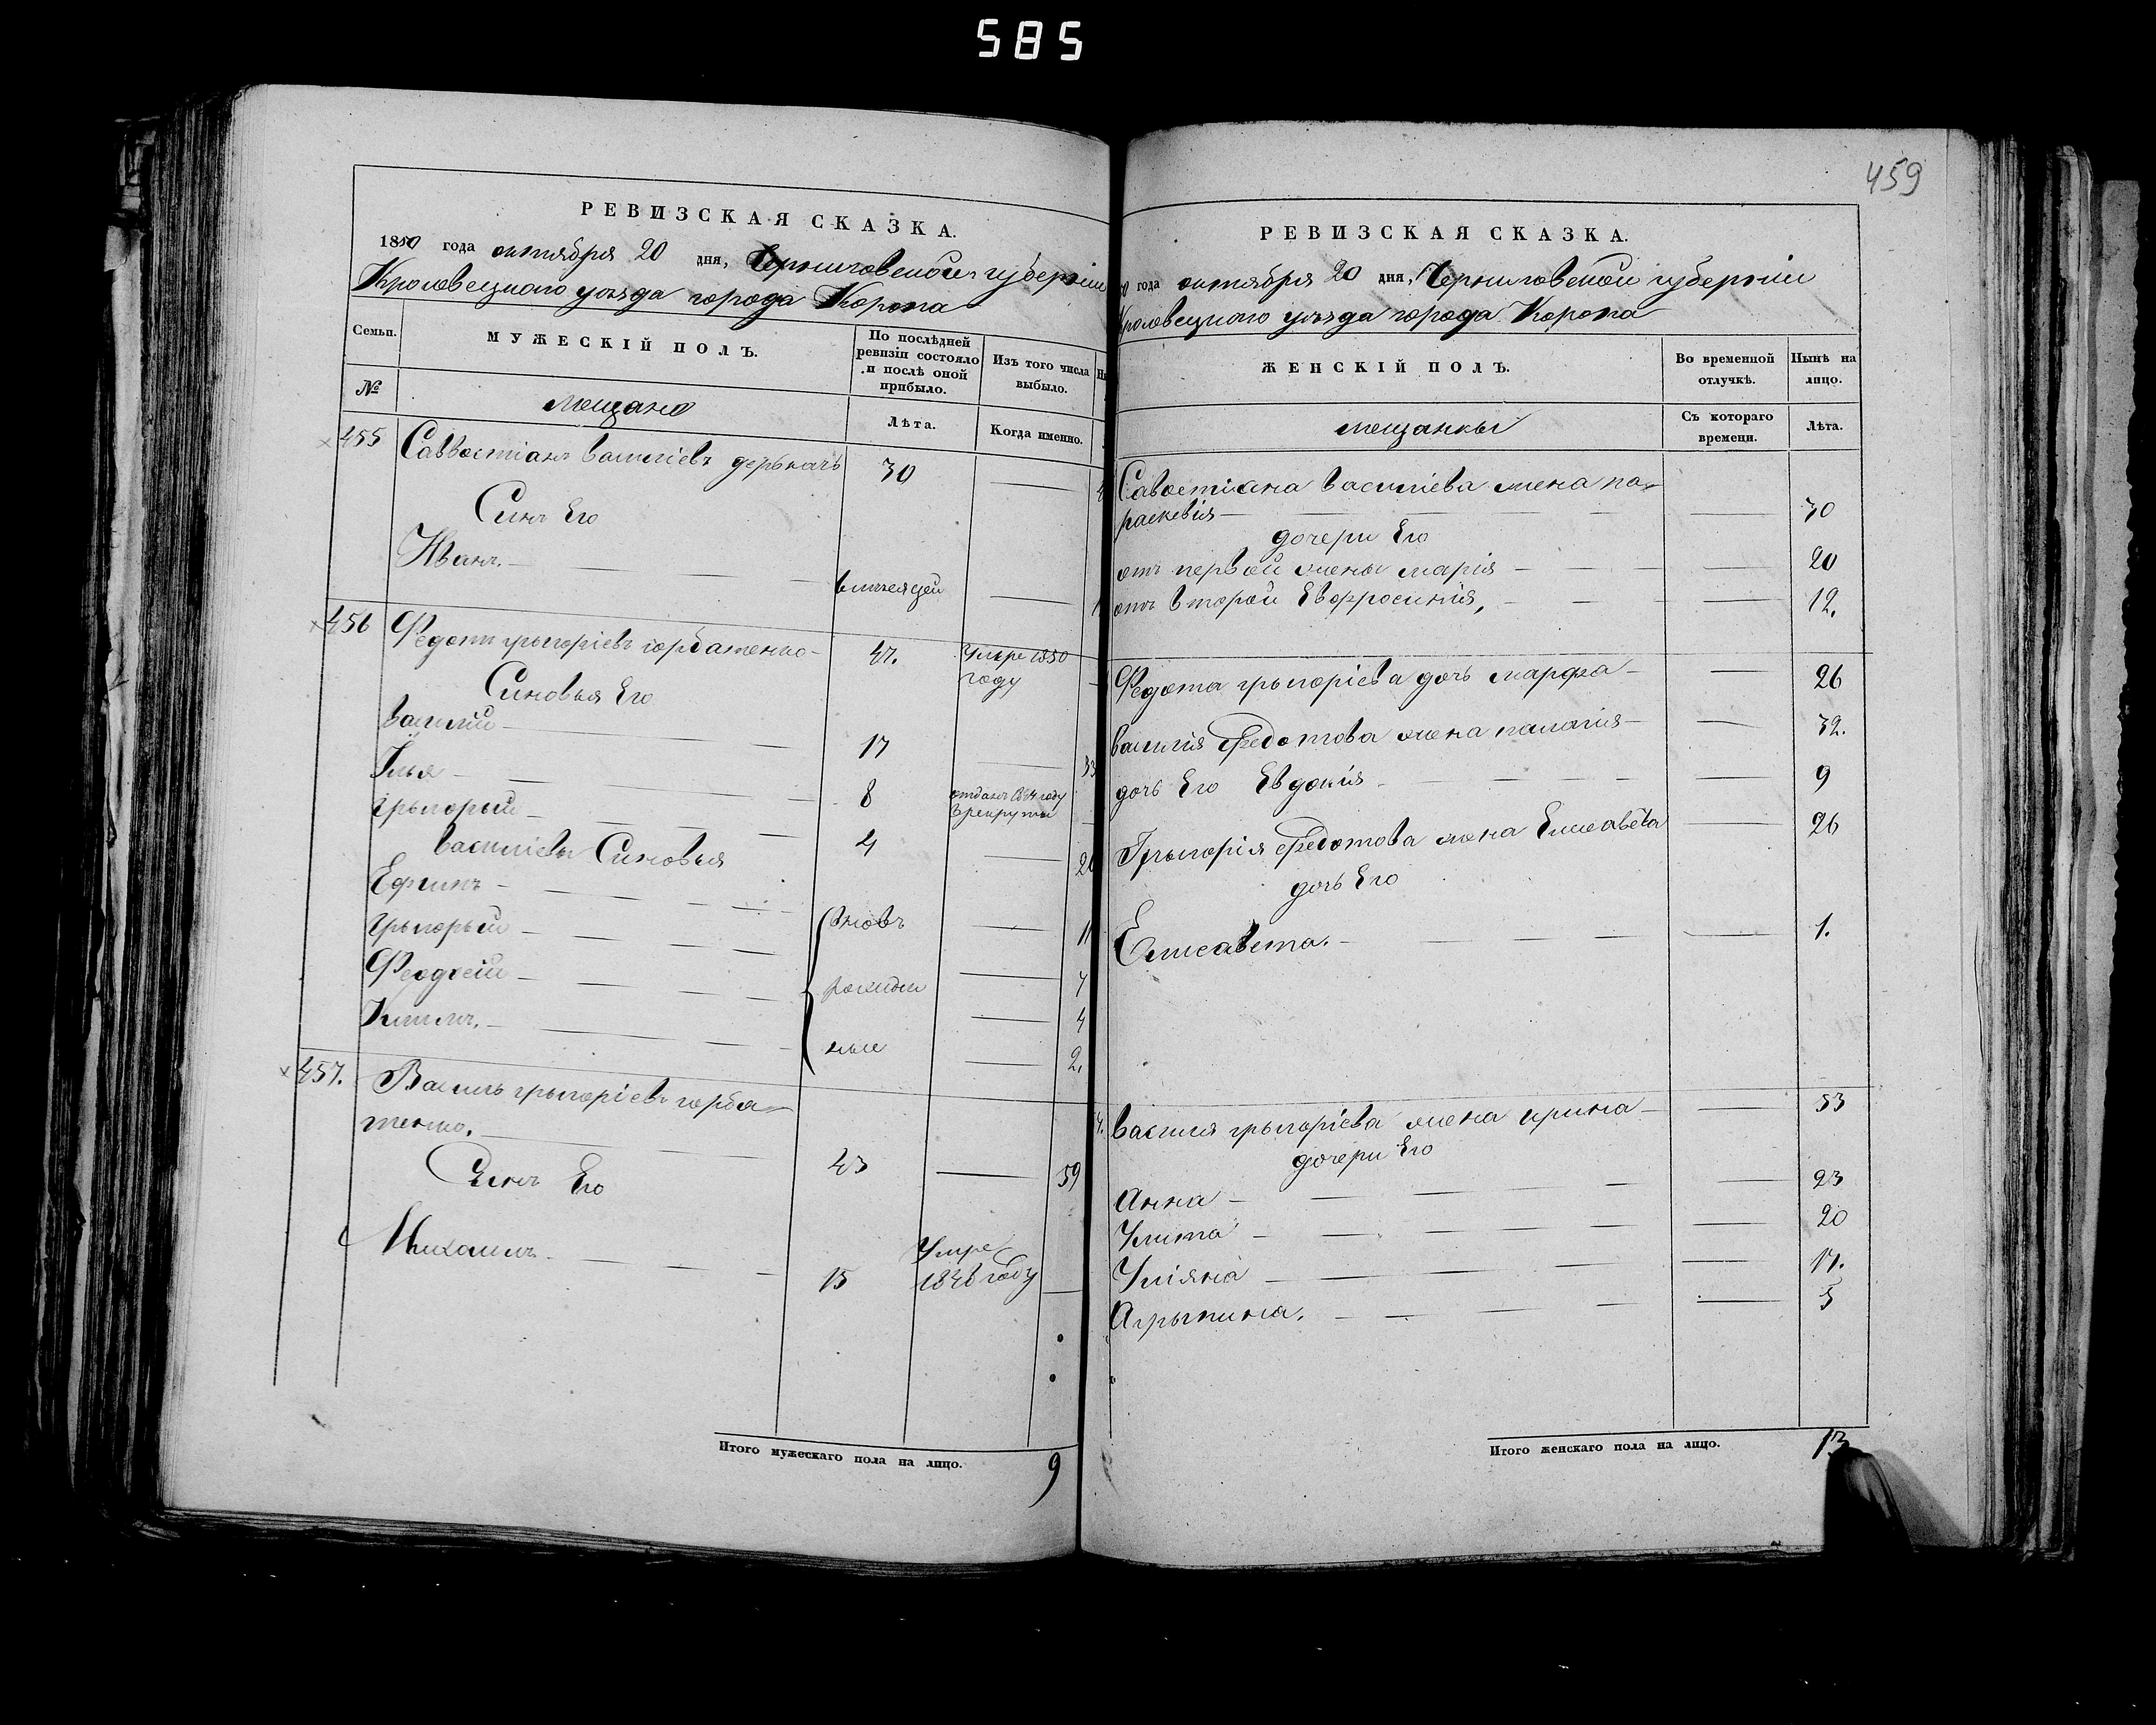 585
459
РЕВИЗСКАЯ СКАЗКА.
1850 года октября 20 дня, Черниговской губерніи
Кролевецкого уѣзда города Коропа
Семьи.
МУЖЕСКІЙ ПОЛЪ.
По послѣдней ревизіи состояло и послѣ оной прибыло.
Изъ того числа выбыло.
№
мещане
Лѣта.
Когда именно.
455 Савостіанъ василіевъ деркачъ 30
Синъ Его
Иванъ.
456 Федотъ грыгоріевъ горбатенко 47. Умре 1850
году
Синовья Его
василій 17 33
Ілья 8 отданъ году
в рекруты
грыгорый 4 20
василіевы Синовья
Ефимъ вновъ 11
грыгорый 7
Феодосій рожден 4
Климъ. ные 2.
457. Василь грыгоріевъ горба-
тенко. 43 59
Синъ Его
Михаилъ 15 Умре
1846 году
Итого мужескаго пола на лицо. 9
РЕВИЗСКАЯ СКАЗКА.
года октября 20 дня, Черниговской губерніи
Кролевецкого уѣзда города Коропа
ЖЕНСКІЙ ПОЛЪ.
Во временной отлучкѣ.
Нынѣ на лицо.
мещанкы
Съ котораго времени.
Лѣта.
Савостіана василіева жена па-
раскевія 30
дочери Его
отъ первой жены марія 20
отъ второй Евфросинія, 12.
Федота грыгоріева дочъ марфа 26
василія Федотова жена палагія 32.
дочъ Его Евдокія 9
Грыгорія Федотова жена Елисавѣта 26
дочъ Его
Елисавета. 1.
василя грыгоріева жена ирина 53
дочери Его
Анна 23
Улита 20
Уліяна 17.
Агрыпина. 5
Итого женскаго пола на лицо. 13